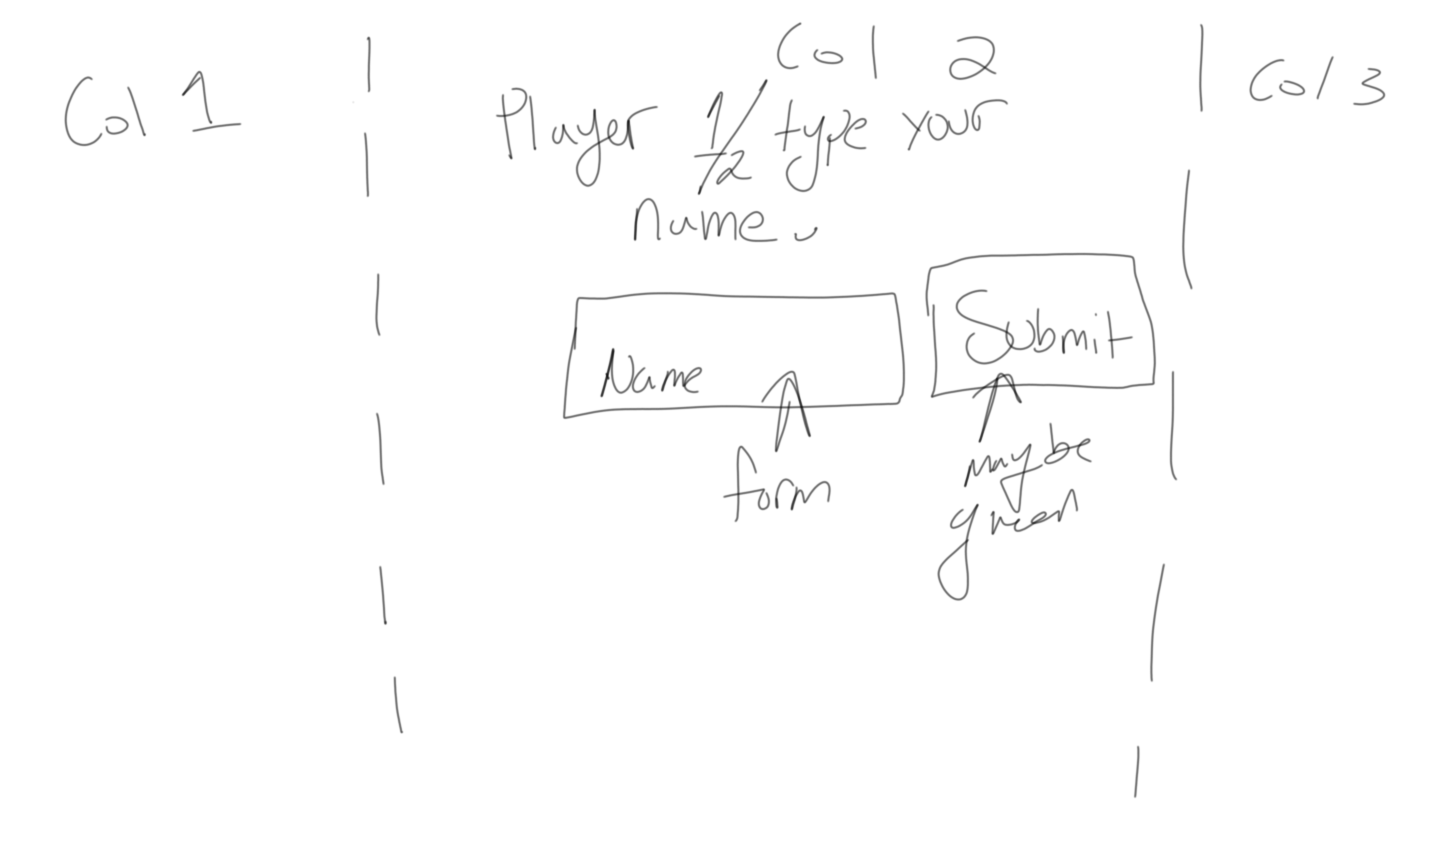 Col 1
Col 2
Col 3
Player 1/2 type your
name.
Name
Submit
form
maybe
green